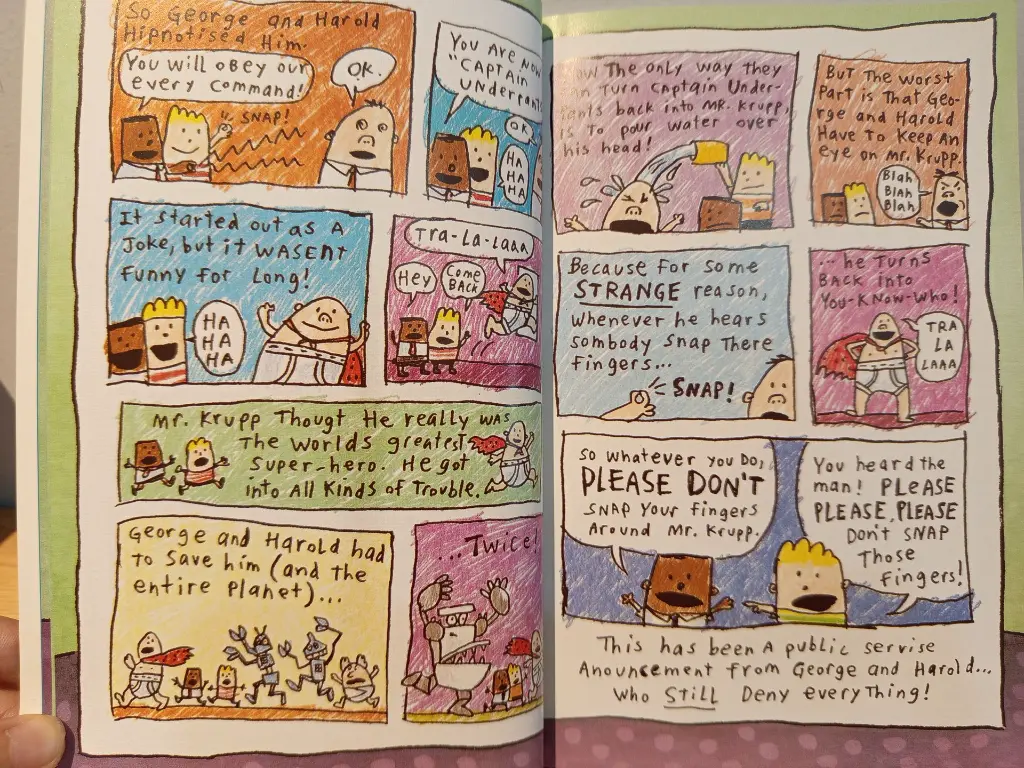 So George and Harold
Hipnotised Him.
You will obey our
every command!
SNAP!
OK.
You are now
"Captain
Underpants
OK
HA
HA
HA
HA
It started out as a
Joke, but it wasent
funny for long!
HA
HA
HA
Tra-La-Laaa
Hey
Come
Back
Mr. Krupp Thougt He really was
The worlds greatest
super-hero. He got
into All Kinds of Trouble.
George and Harold had
to save him (and the
entire planet)...
...Twice!
The only way they
turn Captain Under-
pants back into MR. Krupp,
is To pour water over
his head!
But The worst
Part is That Geo-
rge and Harold
Have To Keep An
eye on Mr. Krupp.
Blah
Blah
Blah
Because for some
STRANGE reason,
whenever he hears
sombody snap There
fingers...
SNAP!
...he Turns
Back into
You-Know-Who!
TRA
LA
LAAA
So whatever you Do,
PLEASE DON'T
snap your fingers
Around Mr. Krupp.
You heard the
man! PLEASE
PLEASE, PLEASE
Don't snap
Those
fingers!
This has been a public servise
Anouncement from George and Harold...
who STILL Deny everything!